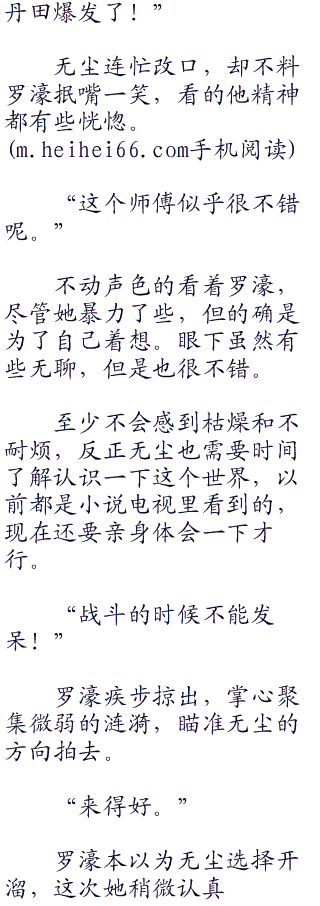 丹田爆发了！”
无尘连忙改口，却不料
罗濠抿嘴一笑，看的他精神
都有些恍惚。
(m.heihei66.com手机阅读)
“这个师傅似乎很不错
呢。”
不动声色的看着罗濠，
尽管她暴力了些，但的确是
为了自己着想。眼下虽然有
些无聊，但是也很不错。
至少不会感到枯燥和不
耐烦，反正无尘也需要时间
了解认识一下这个世界，以
前都是小说电视里看到的，
现在还要亲身体会一下才
行。
“战斗的时候不能发
呆！”
罗濠疾步掠出，掌心聚
集微弱的涟漪，瞄准无尘的
方向拍去。
“来得好。”
罗濠本以为无尘选择开
溜，这次她稍微认真